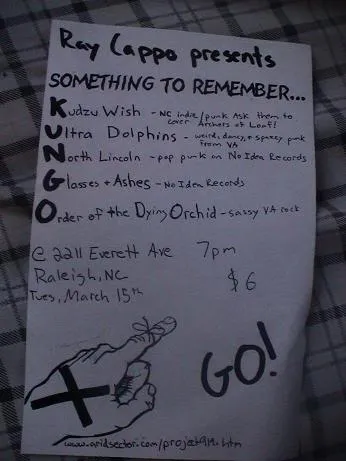 Ray Cappo presents
SOMETHING TO REMEMBER...
Kudzu Wish - NC indie/punk Ask them to
cover Archers of Loaf!
Ultra Dolphins - weird, dancy, + spazzy punk
from VA
North Lincoln - pop punk on No Idea Records
Glasses + Ashes - No Idea Records
Order of the Dying Orchid - sassy VA rock
@ 2211 Everett Ave 7pm
Raleigh, NC $6
Tues, March 15th
GO!
www.aridsector.com/project919.htm